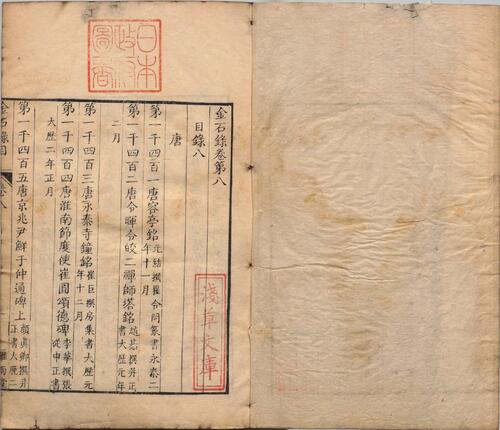 日本
政府
圖書
淺草文庫
金石錄卷第八
目錄八
唐
第一千四百一唐容亭銘元結撰瞿令問篆書永泰二年十一月
第一千四百二唐令暉令皎二禪師塔銘正書大歷元年
二月
第一千四百三唐永泰寺鐘銘崔巨撰房集書大歷元年十二月
第一千四百四唐淮南節度使崔圓頌德碑李華撰張從申正書
大歷二年正月
第一千四百五唐京兆尹鮮于仲通碑上顏真卿撰并正書大歷二
金石錄目
卷八
雅雨堂